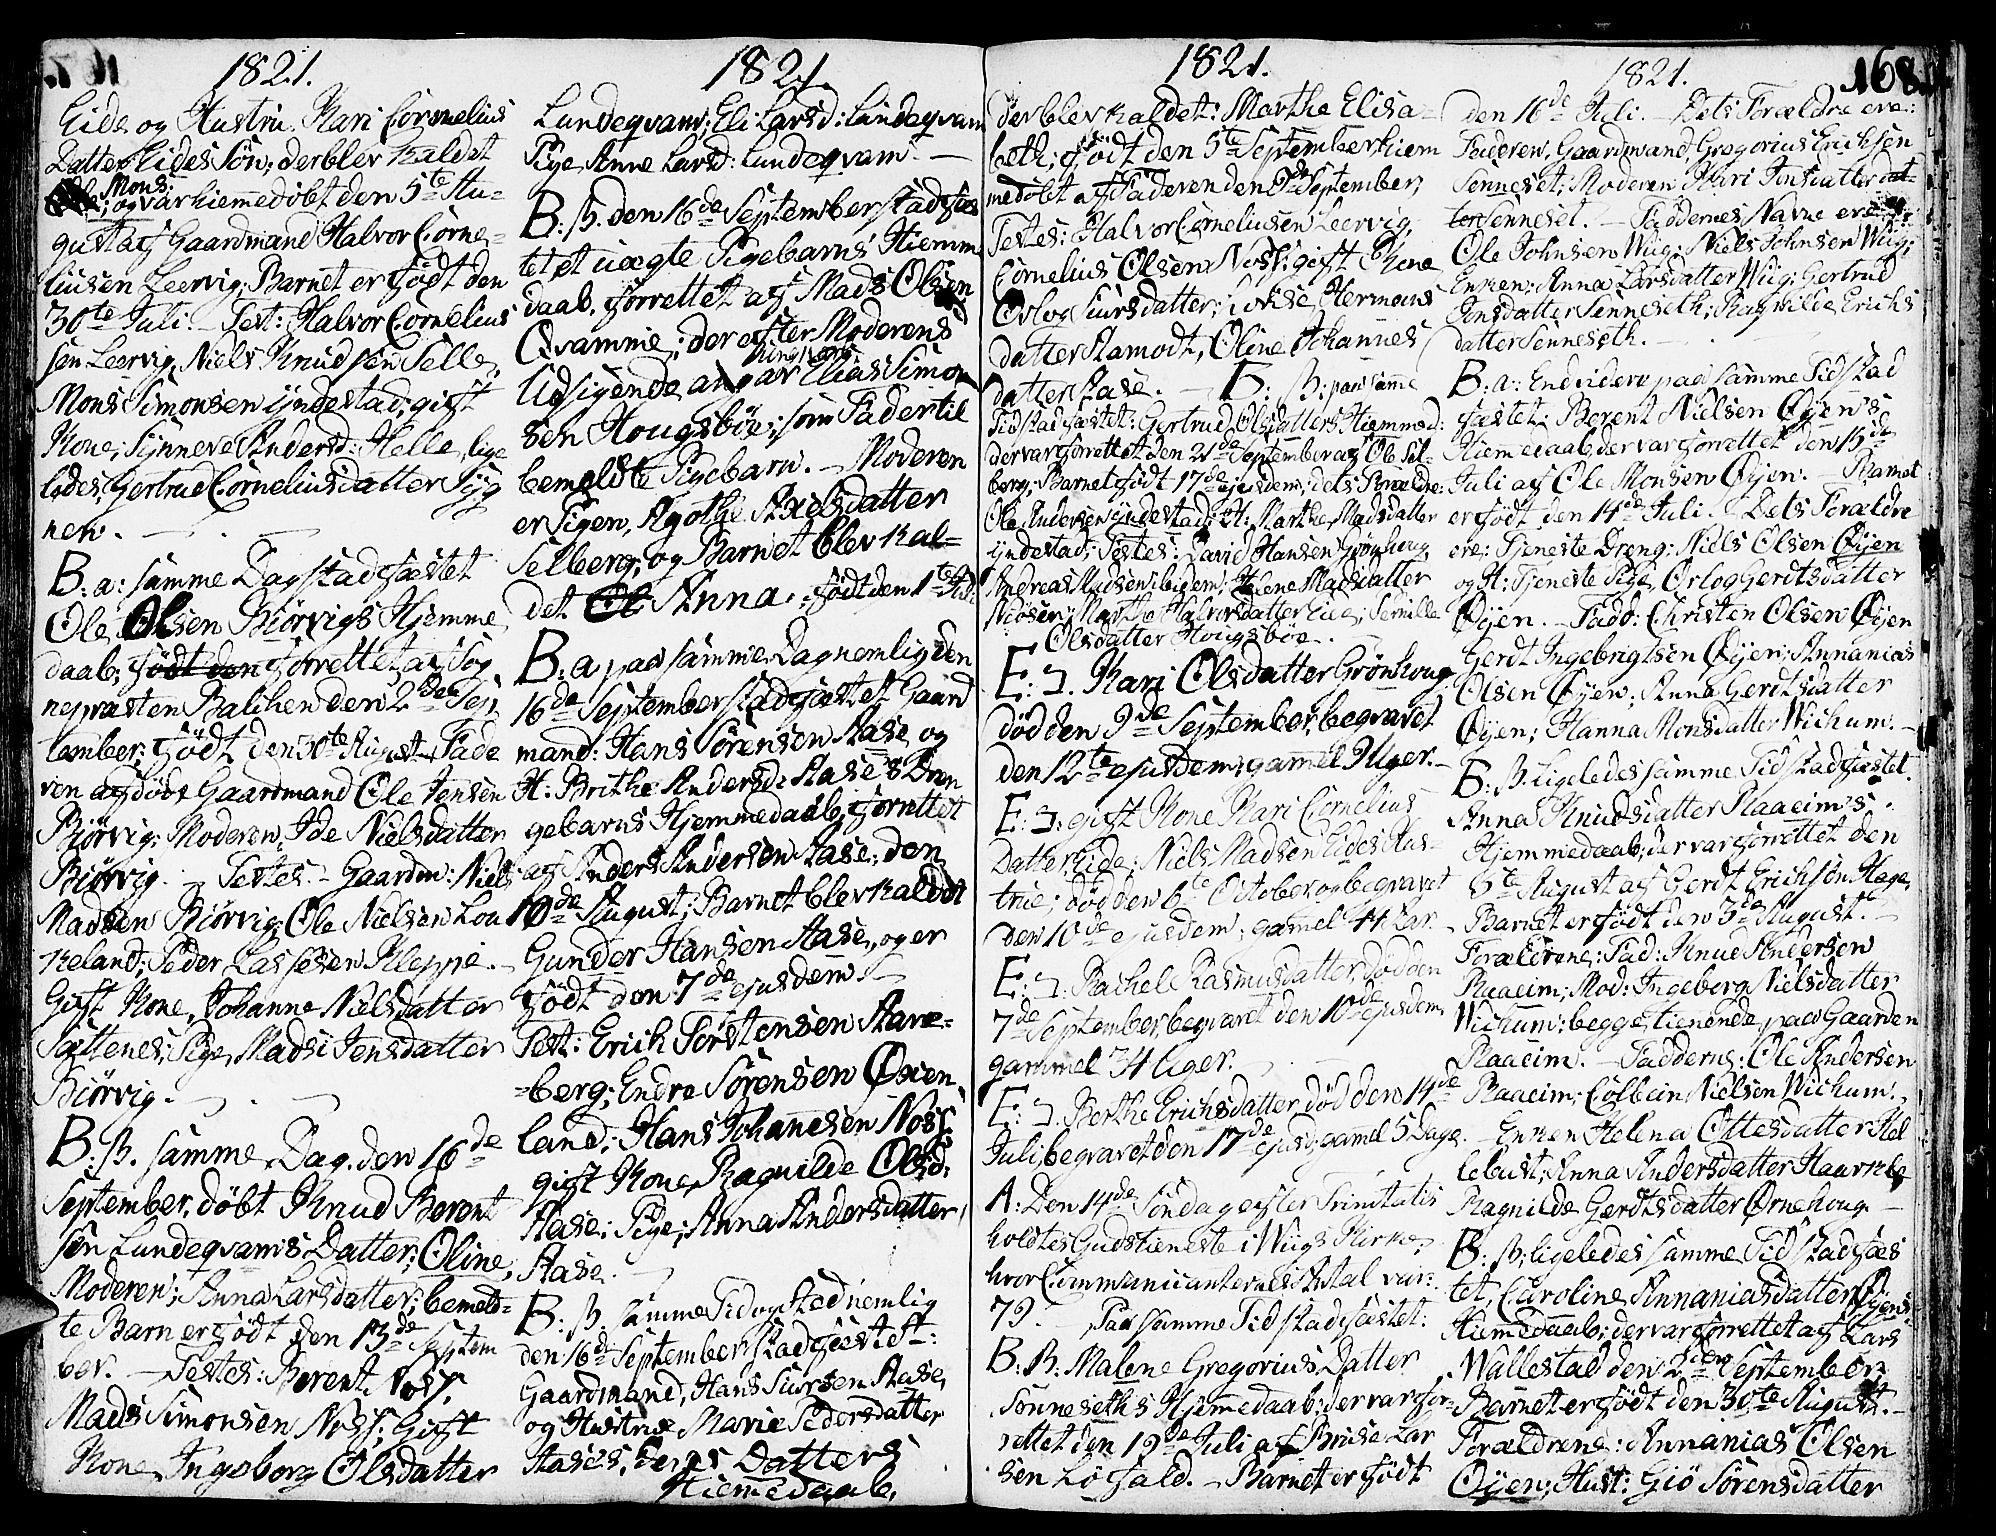 1821.
Eide og Hustru Kari Cornelius
Datter Eides Søn; der blev kaldet
Mons;
og var hiemmedøbt den 5te Au-
gust af Gaardmand Halvor Corne-
liusen Leervig; Barnet er født den
30te Juli. Test: Halvor Cornelius
sen Leervig, Niels Knudsen Selle,
Mons Simonsen Yndestad; gift
Kone; Synneve Andersd: Helle, lige
ledes, Gertrud Corneliusdatter Syg
nen.
B: a: samme Dag stadfæstet
Ole Olsen Biørvigs Hjemme
daab; født den forrettet af Sog
nepræsten Balchen den 2den Sep
tember; født den 30te August Fade
ren afdøde Gaardmand Ole Jensen
Biørvig; Moderen, Ide Nielsdatter
Biørvig. Testes. - Gaardm: Niels
Madsen Biørvig; Ole Nielsen Lou
keland; Peder Lassesen Kleppe.
Gift Kone, Johanne Nielsdatter
Sættenes; Pige, Madsi Jensdatter
Biørvig.
B: ß. samme Dag den 16de
September, døbt Knud Berent
sen Lundeqvams Datter; Oline,
Moderen; Anna Larsdatter; bemeld-
te Barn er født den 13de Septem
ber. - Testes: Berent Noss;
Mads Simonsen Noss; Gift
Kone, Ingeborg Olsdatter
1821
Lundeqvam; Eli Larsd: Lundeqvam
Pige Anne Larsd: Lundeqvam. -
B: ß. den 16de September stadfæs
tet et uægte Pigebarns Hiemme
daab, forrettet af Mads Olsen
Qvamme; der efter Moderens
Udsigende angav Elias Simon
sen Hougsbøe; som Fader til
bemeldte Pigebarn. - Moderen
er Pigen, Agothe Axelsdatter
Selberg; og Barnet blev kal-
det Anna.; født den 1te
B. a paa samme Dag nemlig den
16de September stadfæstet Gaard
mand: Hans Sørensen Aase og
H: Brithe Andersd: Aases Dren
gebarns Hjemmedaab, forrettet
af Anders Andersen Aase; den
10de August; Barnet blev kaldet
Gunder Hansen Aase, og er
født den 7de ejusdem. -
Test: Erich Torstensen Aare-
-berg; Endre Sørensen Øxen
land; Hans Johannesen Noss;
gift Kone, Ragnilde Olsd:
Aase; Pige; Anna Andersdatter
Aase.
B: ß. samme Tid og Sted nemlig
den 16de September stadfæstet:
Gaardmand, Hans Siursen Aase,
og Hustrue Marie Pedersdatter
Aases, Datters
Hiemedaab,
1821.
der blev kaldet: Marthe Elisa-
beth; født den 5te September hiem
medøbt af Faderen den September;
Testes: Halvor Corneliusen Leervig,
Cornelius Olsen Noss; gift Kone
Orlog Siursdatter; Lovise Hermans
datter Aamodt, Oline Johannes
datter Aase. - B: ß: paa samme
Tid stadfæstet: Gertrud Olsdatters Hiemmed:
der var forrettet den 21de September af Ole Sel-
berg; Barnet født 17de ejusdem; dets Forældre:
Ole Andersen Yndestad; H: Marthe Madsdatter
Yndestad; Testes: David Hansen Grønhoug,
Andreas Madsen ibidem; Helene Madsdatter
Niøsen; Marthe Halvorsdatter Eide; Pernille
Olsdatter Hougsbøe.
E: . Kari Olsdatter Grønhoug
død den 9de September, begravet
den 12te ejusdem; gammel Uger.
E: : gift Kone Kari Cornelius
Datter Eide; Niels Madsen Eides Hus-
true; død den 6te October og begravet
den 10de ejusdem; gammel 44 Aar.
E: . Rachel Rasmusdatter, død den
7de September, begravet den 10de ejusdem
gammel 34 Uger.
E: . Berthe Erichsdatter død den 14de
Juli, begravet den 17de ejusd; gamel 5 Dage.
A: Den 14de Søndag efter Trinitatis
holdtes Gudstieneste i Wiigs Kirke,
hvor Communicanternes Antal var:
79. - Paa samme Tid stadfæstet:
B: ß: Malene Gregorius Datter
Sønneseths Hjemedaab; der var for-
rettet den 19de Juli af Bruse Lar
sen Løsfald. - Barnet er født
1821.
168.
den 16de Juli. - Dets Forældre ere:
Faderen, Gaardmand, Gregorius Erichsen
Sønneset; Moderen Kari Jonsdatter dat-
ter Sønneset. - Faddernes Navne ere:
Ole Johnsen Wiig; Niels Johnsen Wiig;
Enken: Anna Larsdatter Wiig; Gertrud
Jonsdatter Sønneseth; Ragnilde Erichs
datter Sønneseth.
B: a: Endvidere paa samme Tid stad
fæstet; Berent Nielsen Øyens
Hiemedaab, der var forrettet den 15de
Juli af Ole Monsen Øyen. - Barnet
er født den 14de Juli. Dets Forældre
ere; Tjeneste Dreng; Niels Olsen Øyen
og H: Tjeneste Pige, Orlog Gerdtsdatter
Øyen. - Fadd: Christen Olsen Øyen
Gerdt Ingebrigtsen Øyen; Annanias
Olsen Øyen; Anna Gerdtsdatter
Øyen; Hanna Monsdatter Wichum. -
B: ß. Ligeledes samme Tid stadfæstet.
Anna Knudsdatter Raaeim's
Hjemmedaab; der var forrettet den
5te August af Gerdt Erichsøn Hage,
Barnet er født den 3de August. -
Forældrene: Fad: Knud Andersen
Raaeim; Mod: Ingeborg Nielsdatter
Wichum; begge tienende paa Gaarden
Raaeim. - Fadderne: Ole Andersen
Raaeim; Colbein Nielsen Wichum.
- Enken Helena Ottesdatter Hel
lebust; Anna Andersdatter Haarkle
Ragnilde Gerdtsdatter Ørnehoug -
B: ß; ligeledes samme Tid stadfæs
tet, Caroline Annaniasdatter Øyens
Hiemedaab; der var forrettet af Lars
Wallestad den 2den September
Barnet er født den 30te August. -
Forældrene: Annanias Olsen
Øyen; Hust: Giø Sørensdatter